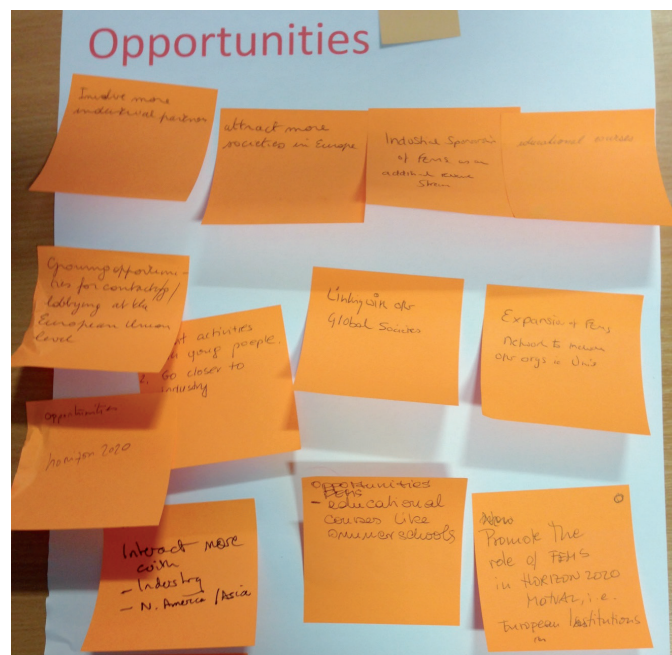 Opportunities
Involve more
industrial partners
attract more
societies in Europe
Industrial Sponsorship
of FEMS as an
additional
Stream
educational courses
Growing opportuni-
ties for contacts/
lobbying at the
European Union
level
activities
young people.
2. Go closer to
industry
Linking with other
Global Societies
Expansion of FEMS
Network to include
other orgs & Unis
opportunities
horizon 2020
Interact more
with
- Industry
- N. America / Asia
opportunities
FEMS
- educational
courses like
summer schools
Promote the
role of FEMS
in HORIZON 2020
i.e.
European Institutions
in